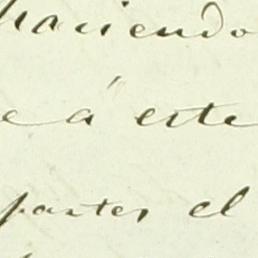 haciendo
e á este
partes el